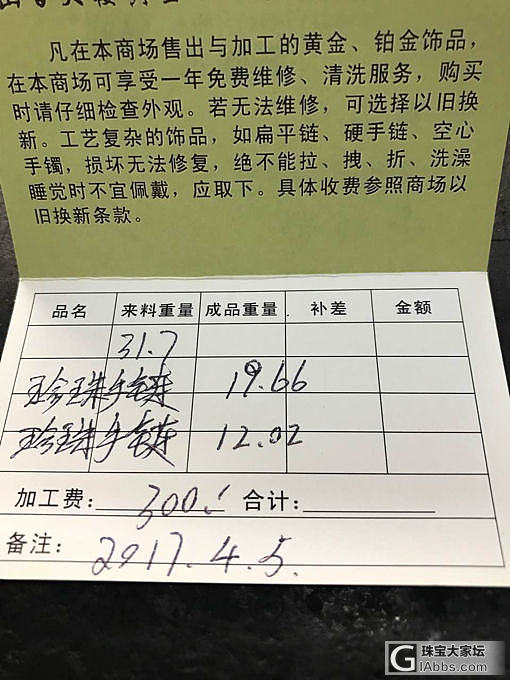 凡在本商场售出与加工的黄金、铂金饰品，
在本商场可享受一年免费维修、清洗服务，购买
时请仔细检查外观。若无法维修，可选择以旧换
新。工艺复杂的饰品，如扁平链、硬手链、空心
手镯，损坏无法修复，绝不能拉、拽、折、洗澡
睡觉时不宜佩戴，应取下。具体收费参照商场以
旧换新条款。
品名 来料重量 成品重量 补差 金额
31.7
珍珠手链 19.66
珍珠手链 12.02
加工费：300. 合计：
备注：2017.4.5.
珠宝大家坛
GIAbbs.com